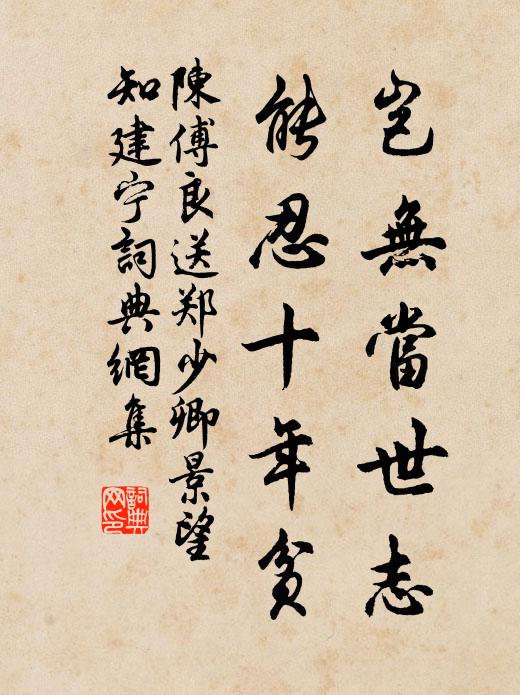 岂無當世志
能忍十年貧
陳傅良送郑少卿景望
知建宁詞典網集
詞典网印